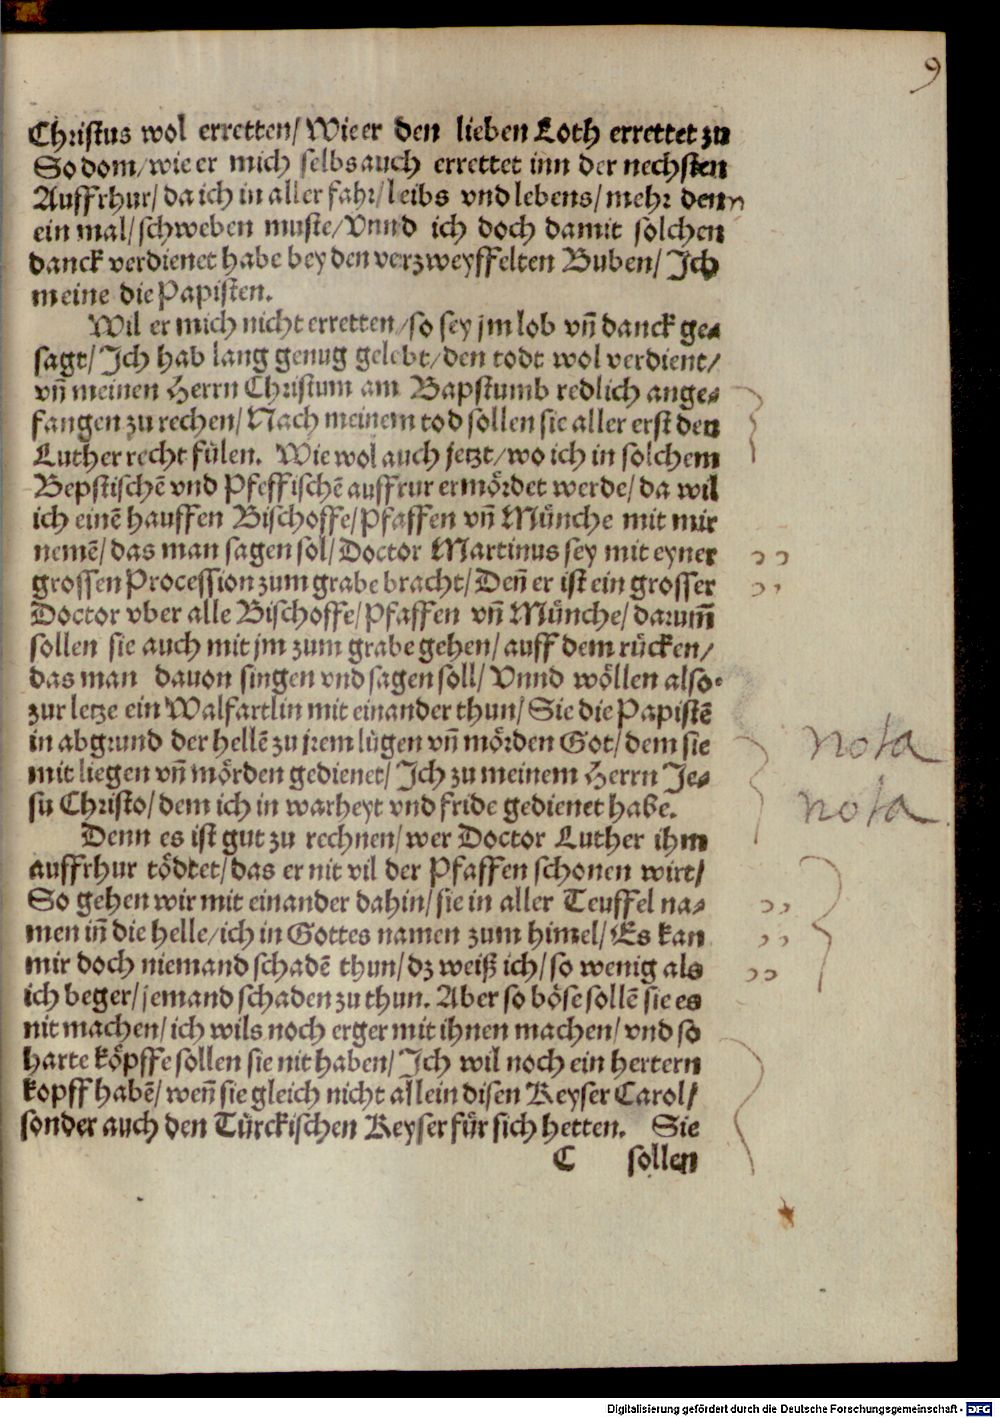 9
Christus wol erretten/ Wie er den lieben Loth errettet zu
Sodom/ wie er mich selbs auch errettet inn der nechsten
Auffrhur/ da ich in aller fahr/ leibs vnd lebens/ mehr denn
ein mal/ schweben muste/ Vnnd ich doch damit solchen
danck verdienet habe bey den verzweyffelten Buben/ Jch
meine die Papisten.
Wil er mich nicht erretten/ so sey jm lob vñ danck ge⸗
sagt/ Jch hab lang genug gelebt/ den todt wol verdient/
vñ meinen Herrn Christum am Bapstumb redlich ange⸗
fangen zu rechen/ Nach meinem tod sollen sie aller erst den
Luther recht fülen. Wie wol auch jetzt/ wo ich in solchem
Bepstischẽ vnd Pfeffischẽ auffrur ermördet werde/ da wil
ich einẽ hauffen Bischoffe/ Pfaffen vñ Münche mit mir
nemẽ/ das man sagen sol/ Doctor Martinus sey mit eyner
grossen Procession zum grabe bracht/ Deñ er ist ein grosser
Doctor vber alle Bischoffe/ Pfaffen vñ Münche/ darum̃
sollen sie auch mit jm zum grabe gehen/ auff dem rücken/
das man dauon singen vnd sagen soll/ Vnnd wöllen also
zur letze ein Walfartlin mit einander thun/ Sie die Papistẽ
in abgrund der hellẽ zu jrem lügen vñ mörden Got/ dem sie
mit liegen vñ mörden gedienet/ Jch zu meinem Herrn Je⸗
su Christo/ dem ich in warheyt vnd fride gedienet habe.
nota
nota
Denn es ist gut zu rechnen/ wer Doctor Luther ihm
auffrhur tödtet/ das er nit vil der Pfaffen schonen wirt/
So gehen wir mit einander dahin/ sie in aller Teuffel na⸗
men iñ die helle/ ich in Gottes namen zum himel/ Es kan
mir doch niemand schadẽ thun/ dz weiß ich/ so wenig als
ich beger/ jemand schaden zu thun. Aber so böse sollẽ sie es
nit machen/ ich wils noch erger mit ihnen machen/ vnd so
harte köpffe sollen sie nit haben/ Jch wil noch ein hertern
kopff habẽ/ weñ sie gleich nicht allein disen Keyser Carol/
sonder auch den Türckischen Keyser für sich hetten. Sie
C sollen
Digitalisierung gefördert durch die Deutsche Forschungsgemeinschaft - DFG